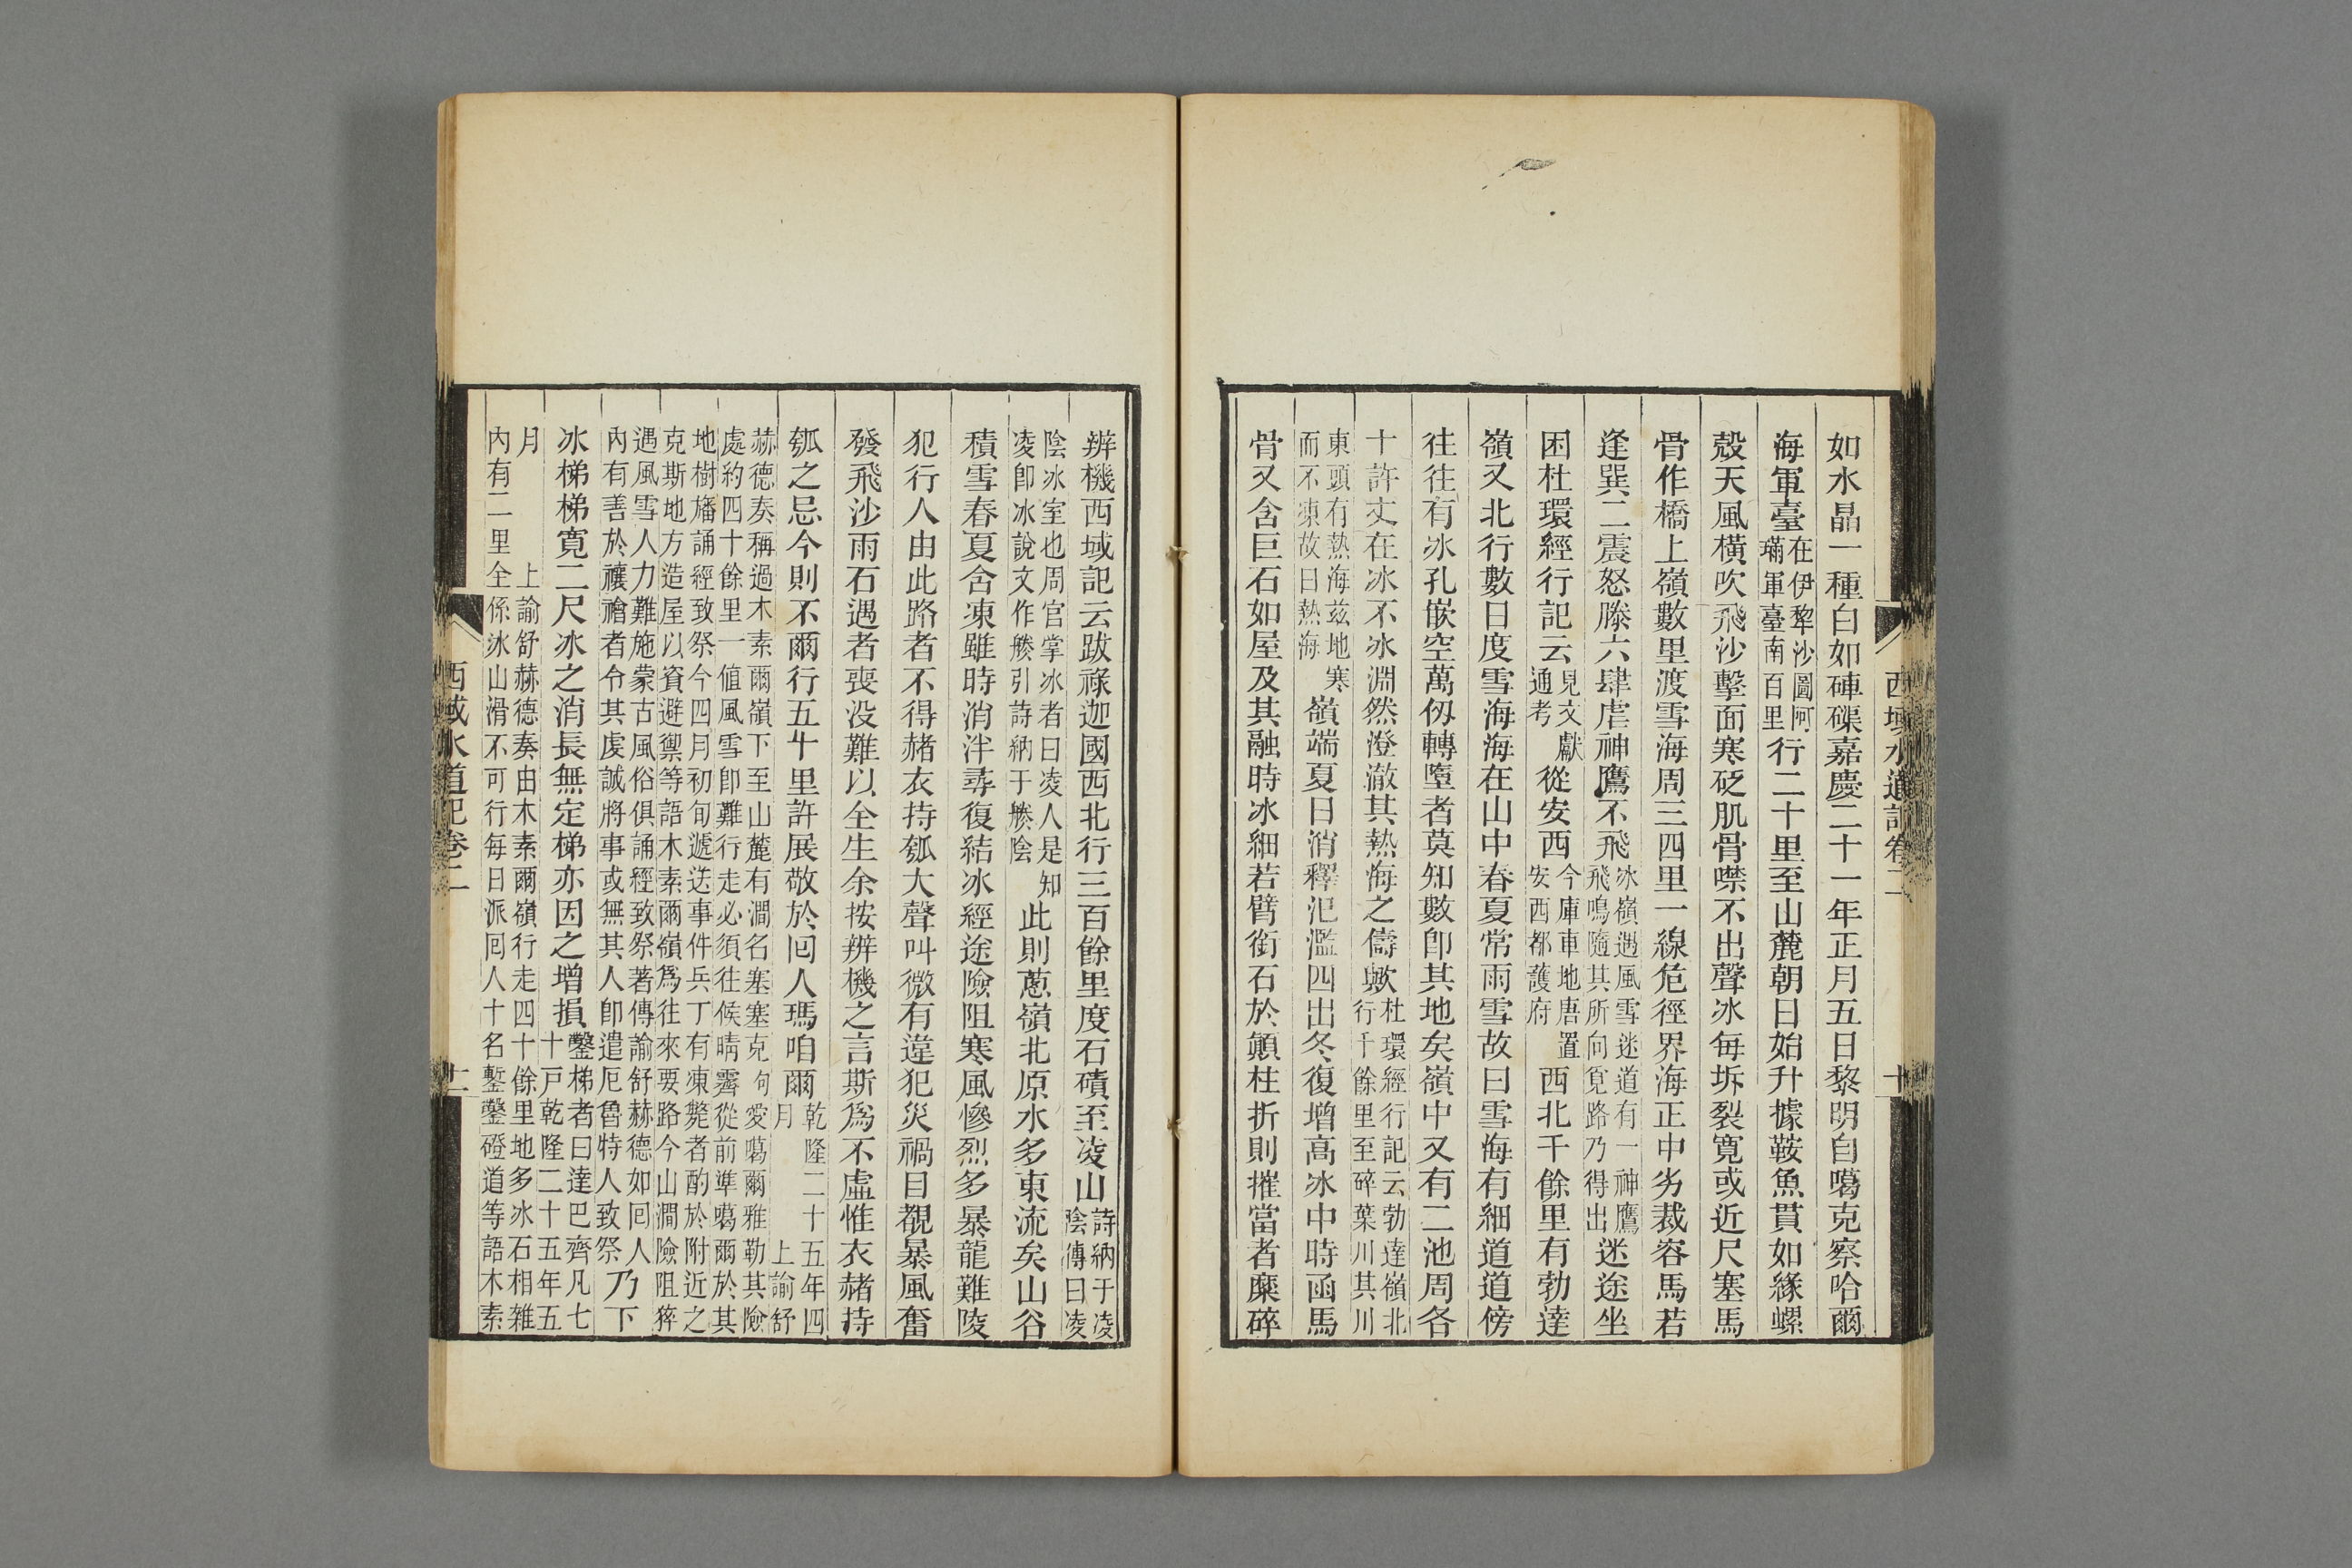 西域水道記卷二
十
如水晶一種白如硨磲嘉慶二十一年正月五日黎明自噶克察哈爾
海軍臺在伊犂沙圖阿璊軍臺南百里行二十里至山麓朝日始升據鞍魚貫如緣螺
殼天風橫吹飛沙擊面寒砭肌骨噤不出聲冰每坼裂寬或近尺塞馬
骨作橋上嶺數里渡雪海周三四里一線危徑界海正中劣裁容馬若
逢巽二震怒滕六肆虐神鷹不飛冰嶺遇風雪迷道有一神鷹飛鳴隨其所向覓路乃得出迷途坐
困杜環經行記云見文獻通考從安西今庫車地唐置安西都護府西北千餘里有勃達
嶺又北行數日度雪海海在山中春夏常雨雪故曰雪海有細道道傍
往往有冰孔嵌空萬仭轉墮者莫知數卽其地矣嶺中又有二池周各
十許丈在冰不冰淵然澄澈其熱海之儔歟杜環經行記云勃達嶺北行千餘里至碎葉川其川
東頭有熱海茲地寒而不凍故曰熱海嶺端夏日消釋氾濫四出冬復增高冰中時函馬
骨又含巨石如屋及其融時冰細若臂銜石於顛柱折則摧當者糜碎
辨機西域記云跋祿迦國西北行三百餘里度石磧至凌山詩納于凌陰傳曰凌
陰冰室也周官掌冰者曰凌人是知凌卽冰說文作䑞引詩納于䑞陰此則蔥嶺北原水多東流矣山谷
積雪春夏含凍雖時消泮尋復結冰經途險阻寒風慘烈多暴龍難陵
犯行人由此路者不得赭衣持瓠大聲叫微有違犯災禍目覩暴風奮
發飛沙雨石遇者喪没難以全生余按辨機之言斯爲不虛惟衣赭持
瓠之忌今則不爾行五十里許展敬於囘人瑪咱爾乾隆二十五年四月 上諭舒
赫德奏稱過木素爾嶺下至山麓有澗名塞塞克句愛噶爾雅勒其險
處約四十餘里一値風雪卽難行走必須往候晴霽從前準噶爾於其
地樹旛誦經致祭今四月初旬遞送事件兵丁有凍斃者酌於附近之
克斯地方造屋以資避禦等語木素爾嶺爲往來要路今山澗險阻猝
遇風雪人力難施蒙古風俗俱誦經致祭著傳諭舒赫德如囘人
內有善於禳禬者令其虔誠將事或無其人卽遣厄魯特人致祭乃下
冰梯梯寬二尺冰之消長無定梯亦因之增損鑿梯者曰達巴齊凡七十戸乾隆二十五年五
月 上諭舒赫德奏由木素爾嶺行走四十餘里地多冰石相雜
內有二里全係冰山滑不可行每日派囘人十名鏨鑿磴道等語木素
西域水道記卷二
十一